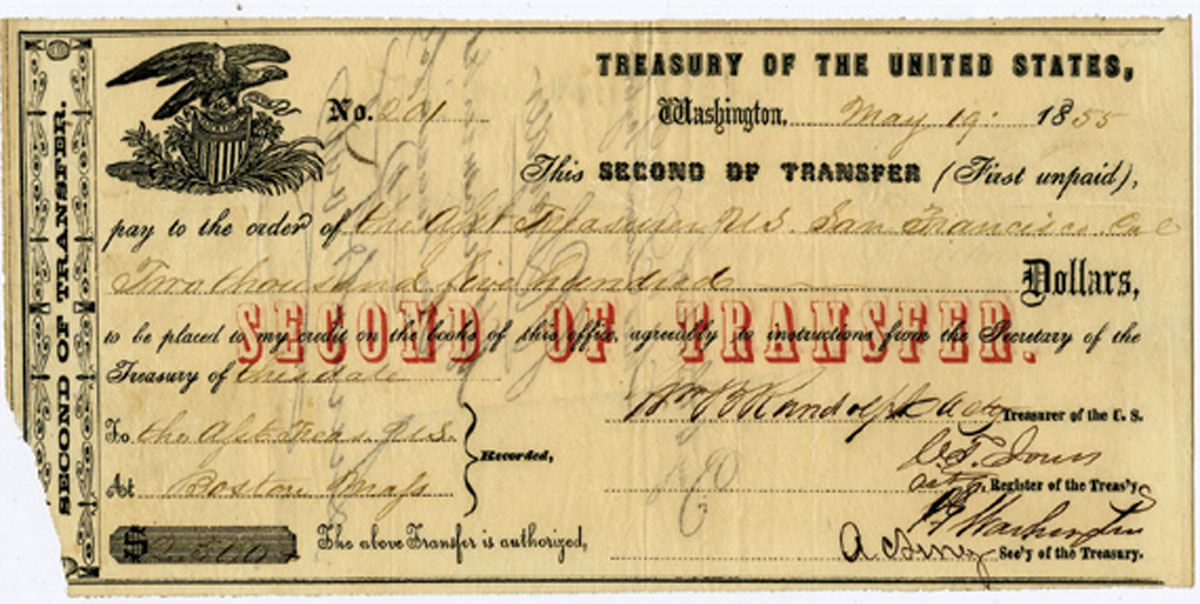 SECOND OF TRANSFER.
TREASURY OF THE UNITED STATES,
No. 201 Washington, May 19. 1855
This SECOND OF TRANSFER (First unpaid),
pay to the order of the Asst Treasurer U.S. San Francisco. Cal
Two thousand five hundred Dollars,
SECOND OF TRANSFER.
to be placed to my credit on the books of this office, agreeably to instructions from the Secretary of the
Treasury of this date
Wm B Randolph Actg Treasurer of the U. S.
To the Asst Treas. U.S.
Recorded,
actg. Register of the Treas'y
At Boston Mass
$2,500
The above Transfer is authorized,
Washington
Sec'y of the Treasury.